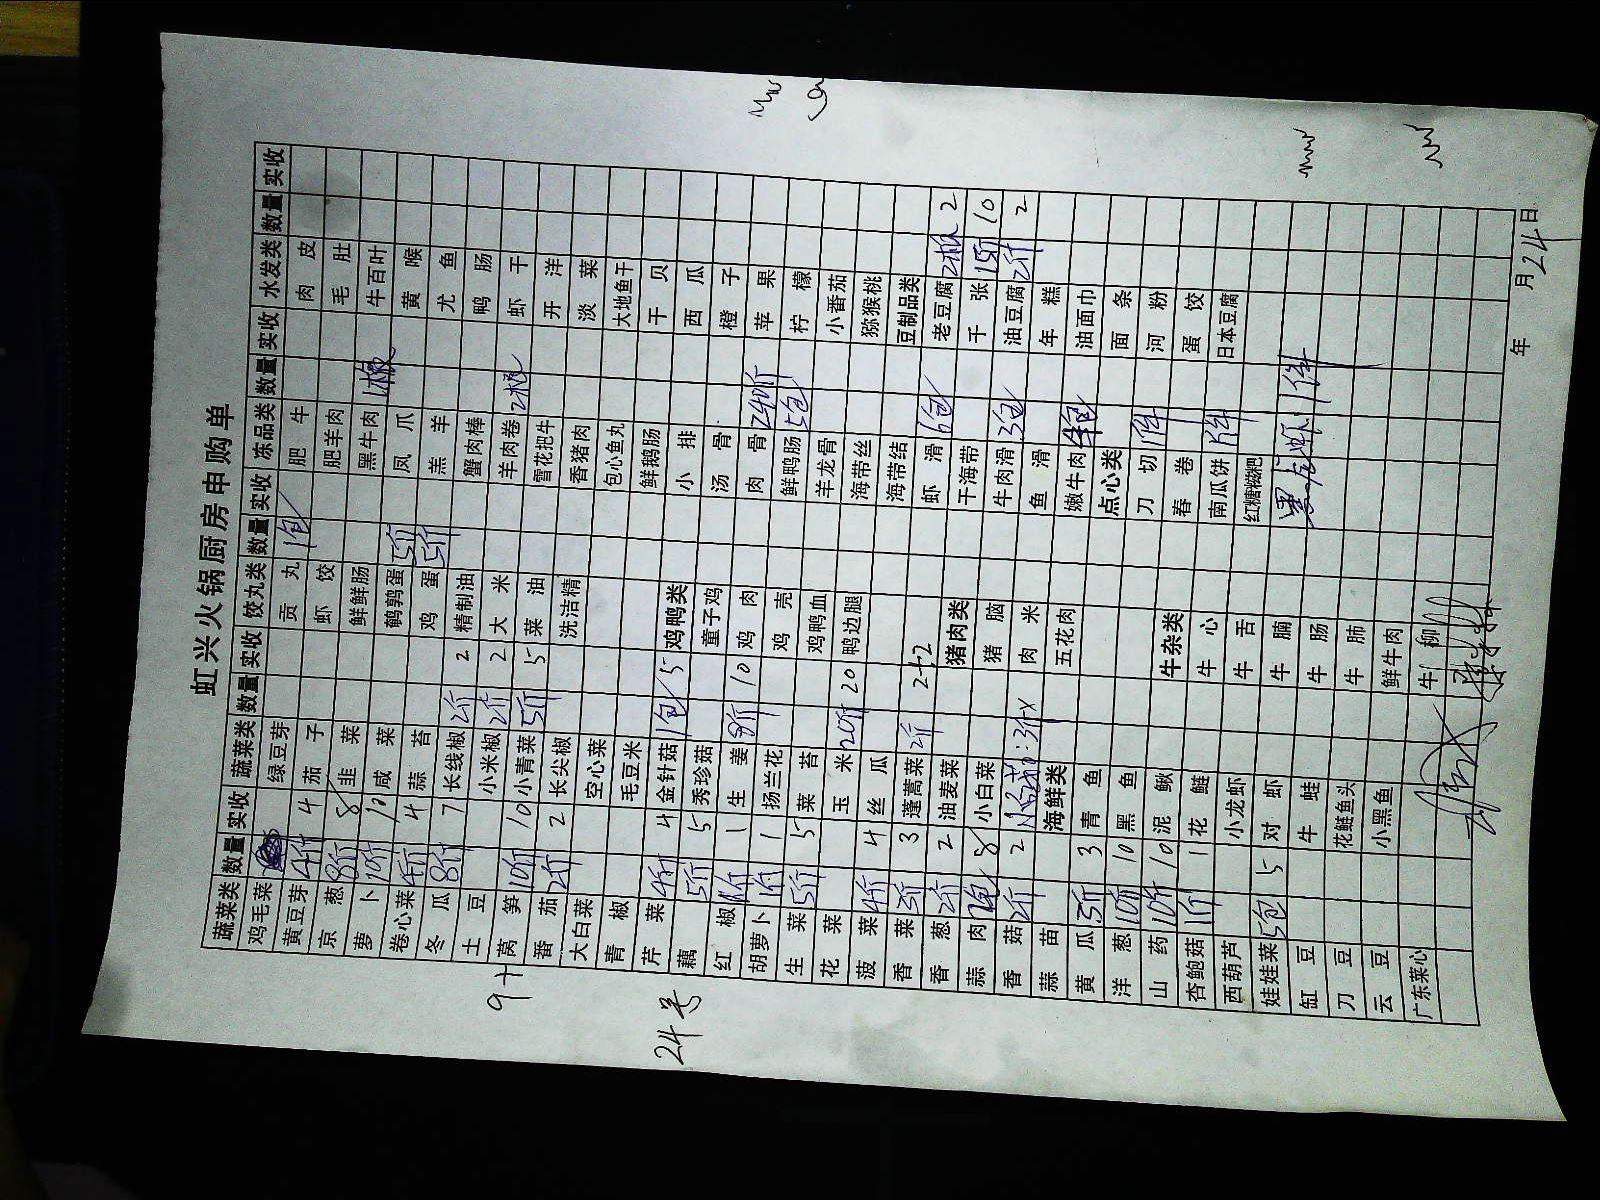 虹兴火锅厨房申购单
蔬菜类 数量 实收 蔬菜类 数量 实收 饺丸类 数量 实收 冻品类 数量 实收 水发类 数量 实收
鸡毛菜 绿豆芽 贡丸 1包 肥牛 肉皮
黄豆芽 4斤 4 茄子 虾饺 肥羊肉 毛肚
京葱 8斤 8 韭菜 鲜鲜肠 黑牛肉 1板 牛百叶
萝卜 10斤 10 咸菜 鹌鹑蛋 5斤 凤爪 黄喉
卷心菜 4斤 4 蒜苔 鸡蛋 5斤 羔羊 尤鱼
冬瓜 8斤 7 长线椒 2斤 2 精制油 蟹肉棒 鸭肠
土豆 小米椒 2斤 2 大米 羊肉卷 2板 虾干
莴笋 10斤 10 小青菜 5斤 5 菜油 雪花把牛 开洋
番茄 2斤 2 长尖椒 洗洁精 香猪肉 淡菜
大白菜 空心菜 包心鱼丸 大地鱼干
青椒 毛豆米 鲜鹅肠 干贝
芹菜 4斤 4 金针菇 1包 5 鸡鸭类 小排 西瓜
藕 5斤 5 秀珍菇 童子鸡 汤骨 橙子
红椒 1斤 1 生姜 8斤 10 鸡肉 肉骨 240斤 苹果
胡萝卜 1斤 1 扬兰花 鸡壳 鲜鸭肠 5包 柠檬
生菜 5斤 5 菜苔 鸡鸭血 羊龙骨 小番茄
花菜 玉米 20斤 20 鸭边腿 海带丝 猕猴桃
菠菜 4斤 4 丝瓜 海带结 豆制品类
香菜 3斤 3 蓬蒿菜 2斤 2+2 虾滑 6包 老豆腐 2板 2
香葱 2斤 2 油麦菜 猪肉类 干海带 千张 15斤 10
蒜肉 8 小白菜 猪脑 牛肉滑 3包 油豆腐 2斤 2
香菇 2斤 2 肉米 鱼滑 年糕
蒜苗 海鲜类 五花肉 嫩牛肉 油面巾
黄瓜 3斤 3 青鱼 点心类 面条
洋葱 10斤 10 黑鱼 刀切 1件 河粉
山药 10斤 10 泥鳅 牛杂类 春卷 蛋饺
杏鲍菇 1斤 1 花鲢 牛心 南瓜饼 1件 日本豆腐
西葫芦 小龙虾 牛舌 红糖糍粑
娃娃菜 5包 5 对虾 牛腩 1件
缸豆 牛蛙 牛肠
刀豆 花鲢鱼头 牛肺
云豆 小黑鱼 鲜牛肉
广东菜心 牛柳
年 月 24日
9+
24号